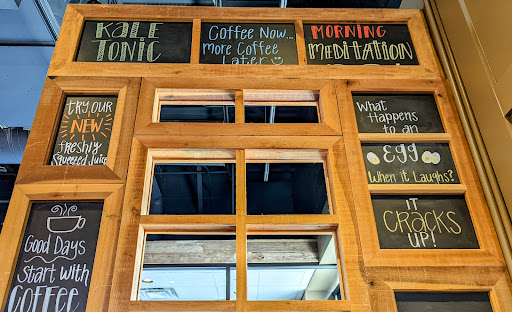 KALE
TONIC
Coffee Now...
more Coffee
Later
MORNING
MEDITATION
TRY OUR
NEW
freshly
Squeezed Juice
What
Happens
to an
EGG
When it Laughs?
IT
CRACKS
UP!
Good Days
Start with
COFFEE